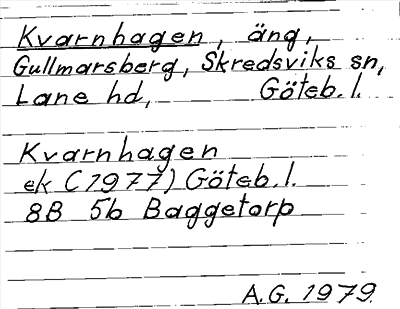 Kvarnhagen, äng,
Gullmarsberg, Skredsviks sn,
Lane hd, Göteb. l.
Kvarnhagen
ek (1977) Göteb. l.
8B 5b Baggetorp
A.G. 1979.